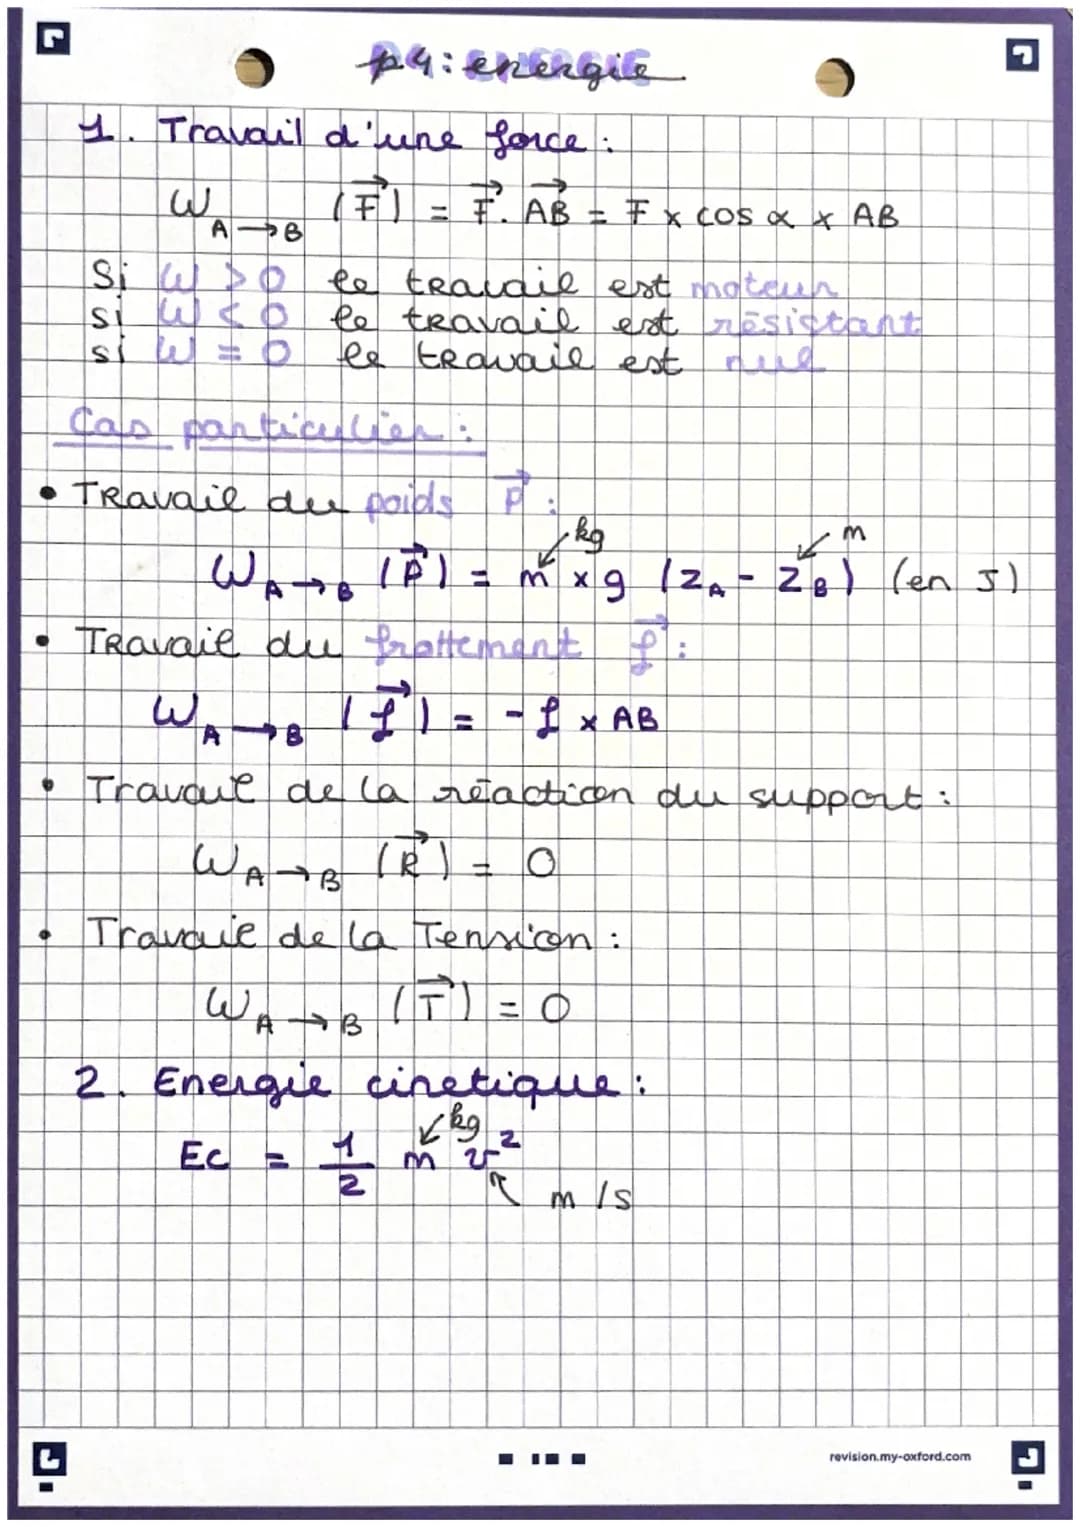 P4: energie
1. Travail d'une force :
W A→B (F⃗) = F⃗. AB⃗ = F x cos α x AB
Si W > 0 le travail est moteur
si W < 0 le travail est résistant
si W = 0 le travail est nul
Cas particulier :
• Travail du poids P⃗ :
kg m
W A→B (P⃗) = m x g (zA - zB) (en J)
• Travail du frottement f⃗ :
W A→B (f⃗) = - f x AB
• Travail de la réaction du support :
W A→B (R⃗) = 0
• Travail de la Tension :
W A→B (T⃗) = 0
2. Energie cinetique :
kg
Ec = 1/2 m v²
m /s
revision.my-oxford.com